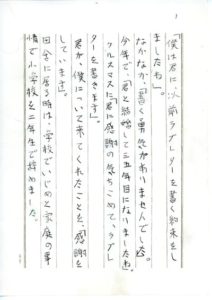 1
「僕は君に以前ラブレターを書く約束をし
ましたね」
なかなか、書く勇気がありませんでした。
今年で、君と結婚して三五年目になりましたね。
クリスマスに君に感謝の気持ちこめて、ラブレ
ターを書きます」
君が、僕について来てくれたことを、感謝を
しています。
田舎に居る時は、学校でいじめと家庭の事
情で小学校を二年生で辞めました。